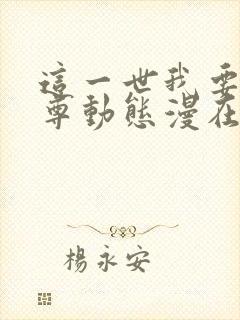 這一世我要
尊動態漫在
楊永安